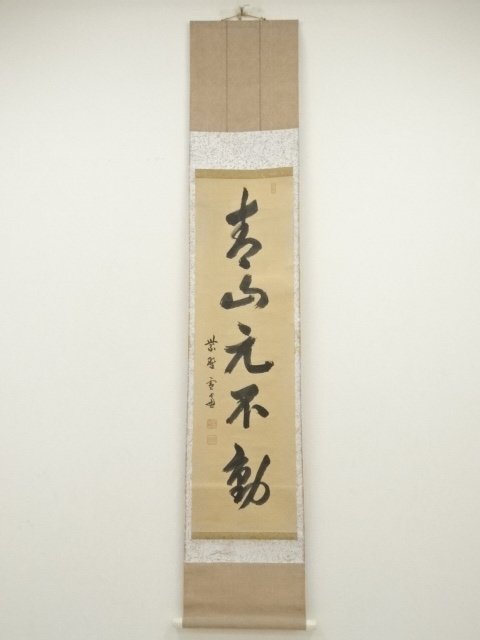 青山元不動
紫野